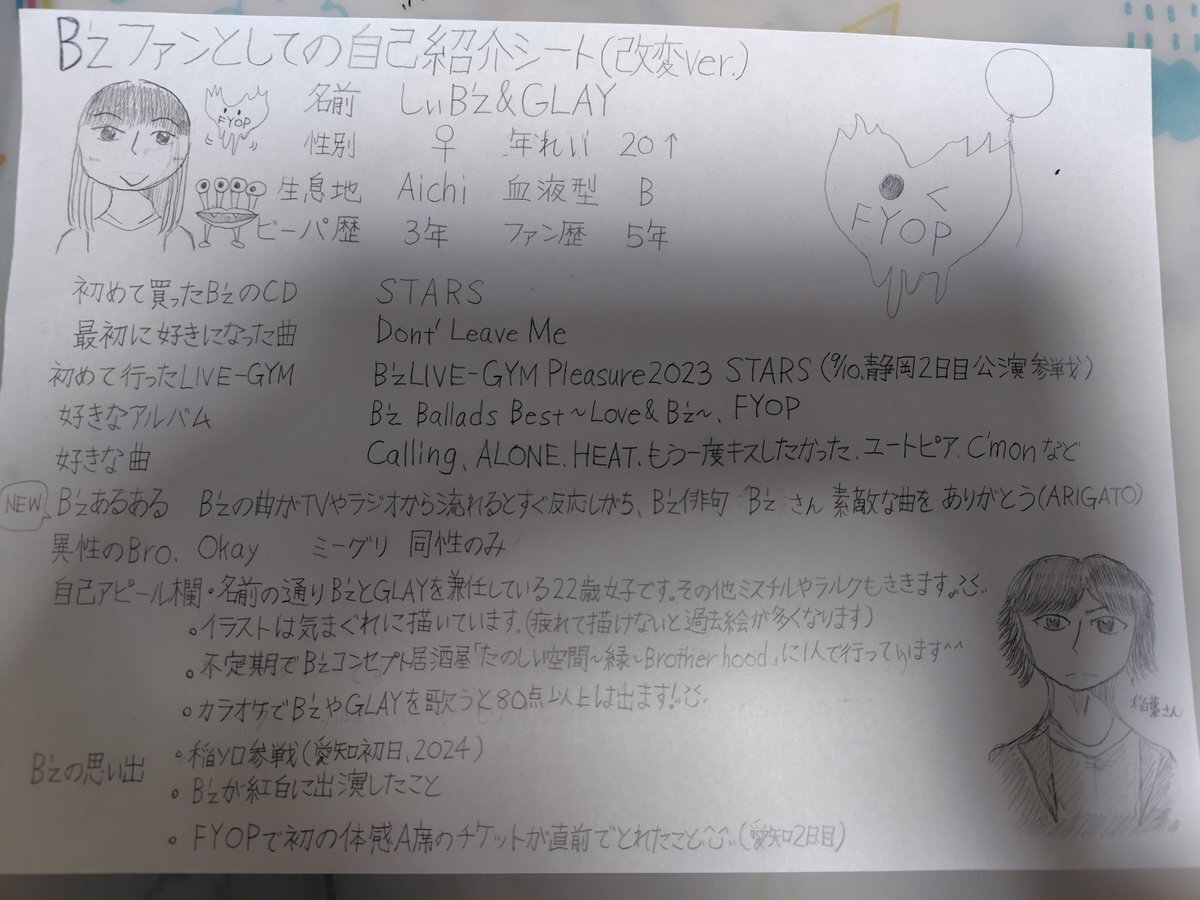 B'zファンとしての自己紹介シート(改変ver.)
名前 しぃB'z&GLAY
FYOP
性別 ♀ 年れい 20↑
生息地 Aichi 血液型 B
ビーパ歴 3年 ファン歴 5年
FYOP
初めて買ったB'zのCD STARS
最初に好きになった曲 Dont' Leave Me
初めて行ったLIVE-GYM B'z LIVE-GYM Pleasure2023 STARS (9/10,静岡2日目公演参戦)
好きなアルバム B'z Ballads Best ~Love & B'z~、FYOP
好きな曲 Calling、ALONE、HEAT、もう一度キスしたかった、ユートピア、C'monなど
NEW B'zあるある B'zの曲がTVやラジオから流れるとすぐ反応しがち、B'z俳句 B'zさん 素敵な曲を ありがとう(ARIGATO)
異性のBro. Okay ミーグリ 同性のみ
自己アピール欄・名前の通りB'zとGLAYを兼任している22歳女子です。その他ミスチルやラルクもききます。
・イラストは気まぐれに描いています。(疲れて描けないと過去絵が多くなります)
・不定期でB'zコンセプト居酒屋「たのしい空間~緑~Brother hood」に1人で行っています^^
・カラオケでB'zやGLAYを歌うと80点以上は出ます!
稲葉さん
B'zの思い出 ・稲ソロ参戦(愛知初日、2024)
・B'zが紅白に出演したこと
・FYOPで初の体感A席のチケットが直前でとれたこと(愛知2日目)